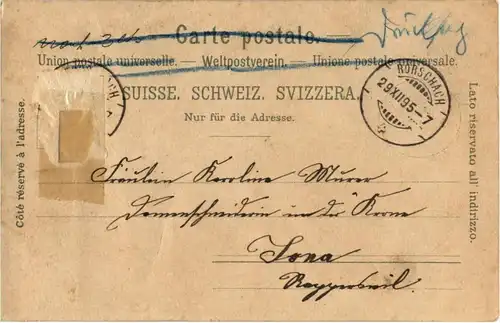 Carte postale.
Union postale universelle. — Weltpostverein. — Unione postale universale.
SUISSE. SCHWEIZ. SVIZZERA.
Nur für die Adresse.
RORSCHACH
29.XII.95-7
Côté réservé à l'adresse.
Lato riservato all' indirizzo.
Fräulein Karoline Murer
Damenschneiderin in der Krone
Jona
Rapperswil.